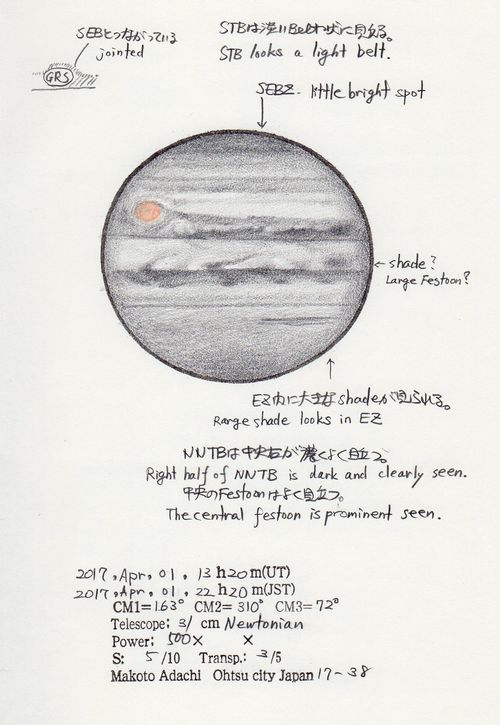 SEBとつながっている
jointed
GRS
STBは淡いBelt状に見える。
STB looks a light belt.
SEBZ- little bright spot
← shade?
Large Festoon?
EZ内に大きなshadeが見られる。
Rarge shade looks in EZ
NNTBは中央右が濃くよく目立つ。
Right half of NNTB is dark and clearly seen.
中央のFestoonはよく目立つ。
The central festoon is prominent seen.
2017, Apr, 01, 13 h 20 m(UT)
2017, Apr, 01, 22 h 20 m(JST)
CM1= 163° CM2= 310° CM3= 72°
Telescope: 31 cm Newtonian
Power: 500× ×
S: 5/10 Transp.: 3/5
Makoto Adachi Ohtsu city Japan 17-38